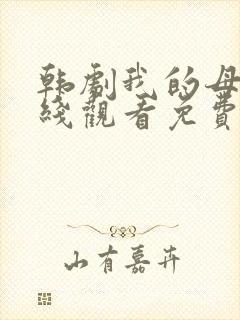 韩剧我的母
线观看免费
山有嘉卉